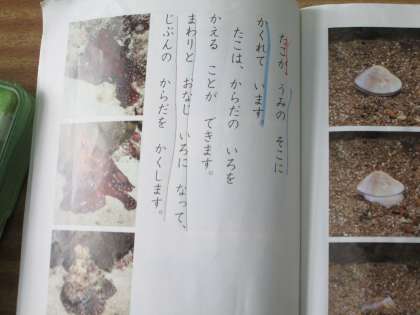 たこが、うみの そこに
かくれて います。
たこは、からだの いろを
かえる ことが できます。
まわりと おなじ いろに なって、
じぶんの からだを かくします。